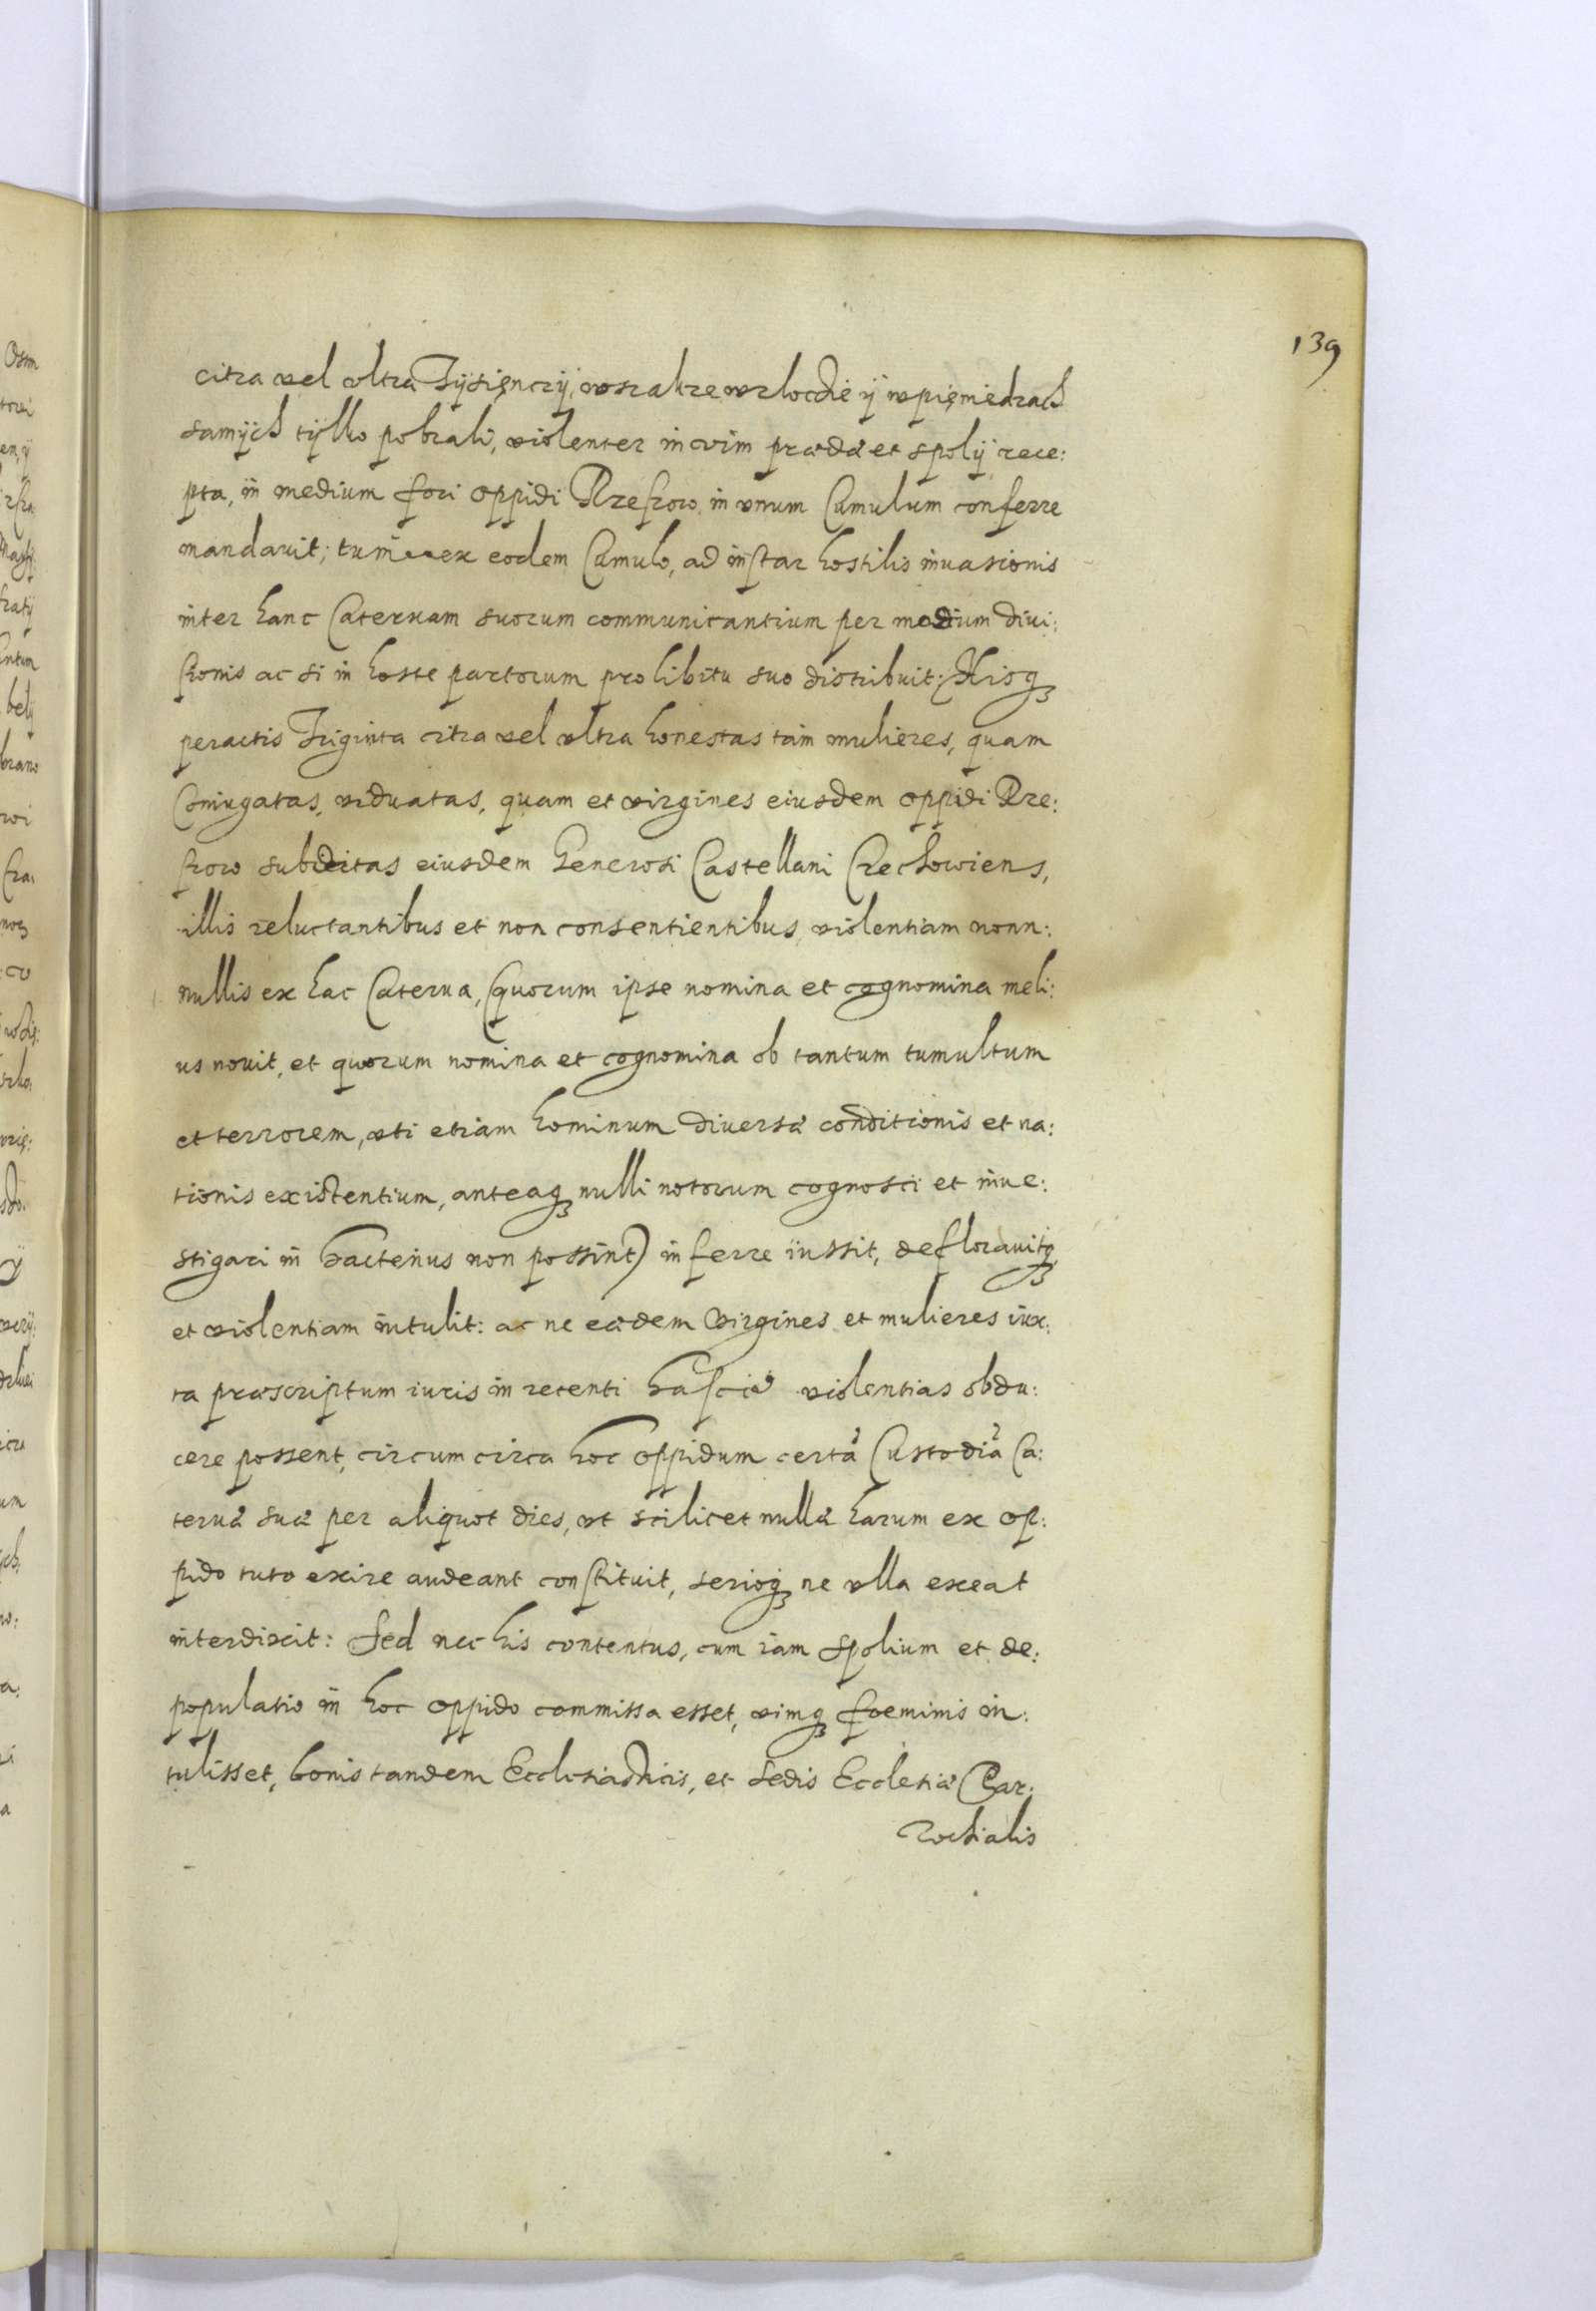 139
citra vel vltra Tÿsięnczÿ, w szakze w zlocdie ÿ w pięniedzach
samÿch tÿlko pobrali, violenter in vim prædæ et spolÿ rece:
pta, in medium fori oppidi Rzeszow in vnum Cumulum conferre
mandavit; tum ex eodem Cumulo, ad instar hostilis invasionis
inter hanc Cateruam suorum communicantium per modum diui:
sionis ac si in hoste partorum pro libitu suo distribuit; Hisq₃
peractis Triginta citra vel vltra honestas tam mulieres, quam
Coniugatas, viduatas, quam et virgines eiusdem oppidi Rze:
szow subditas eiusdem Generosi Castellani Czechowiens,
illis reluctantibus et non consentientibus violentiam nonn:
nullis ex hac Caterua, (quorum ipse nomina et cognomina meli:
us nouit, et quorum nomina et cognomina ob tantum tumultum
et terrorem, vti etiam hominum diversæ conditionis et na:
tionis existentium, anteaq₃ nulli notorum cognosci et inue:
stigari in hactenus non possint) in ferre iussit, deflorauitq₃
et violentiam intulit: ac ne eædem virgines et mulieres iux:
ta præscriptum iuris in recenti hasce violentias obdu:
cere possent, circum circa hoc oppidum certa Custodia Ca:
teruæ suæ per aliquot dies, vt scilicet nullæ harum ex op:
pido tuto exire audeant constituit, serioq₃ ne vlla exeat
interdixit: Sed nec his contentus, cum iam spolium et de:
populatio in hoc oppido commissa esset, vimq₃ foeminis in:
tulisset, bonis tandem Ecclesiasticis, et Sedis Ecclesiæ Par:
rochialis